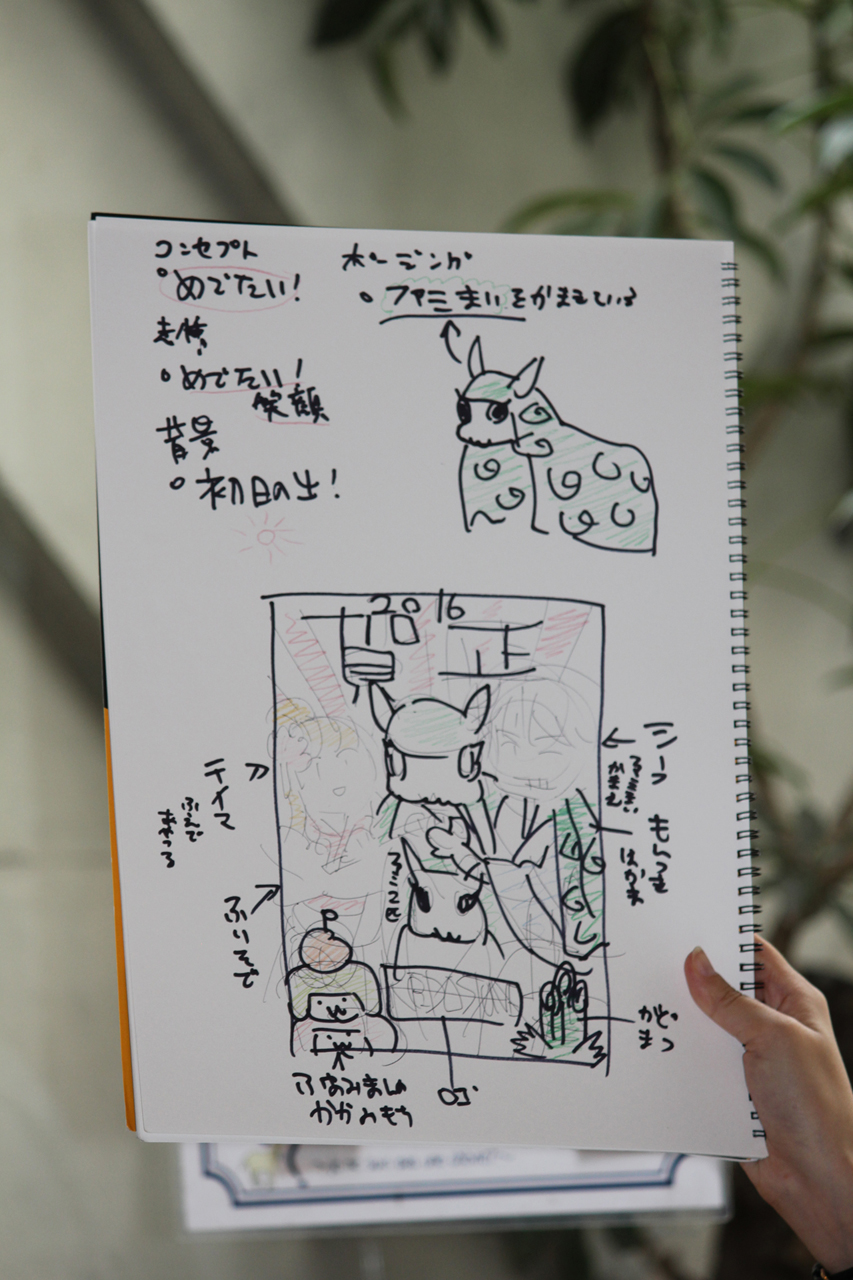 コンセプト
めでたい!
表情
めでたい!
笑顔
背景
初日の出!
ポージング
ファミまいをかまえている
2016
テイマ
ふえで
あやつる
ふりそで
シーフ
かまえ
もんつき
はかま
かど
まつ
ロゴ
ふぁみましの
かがみもち